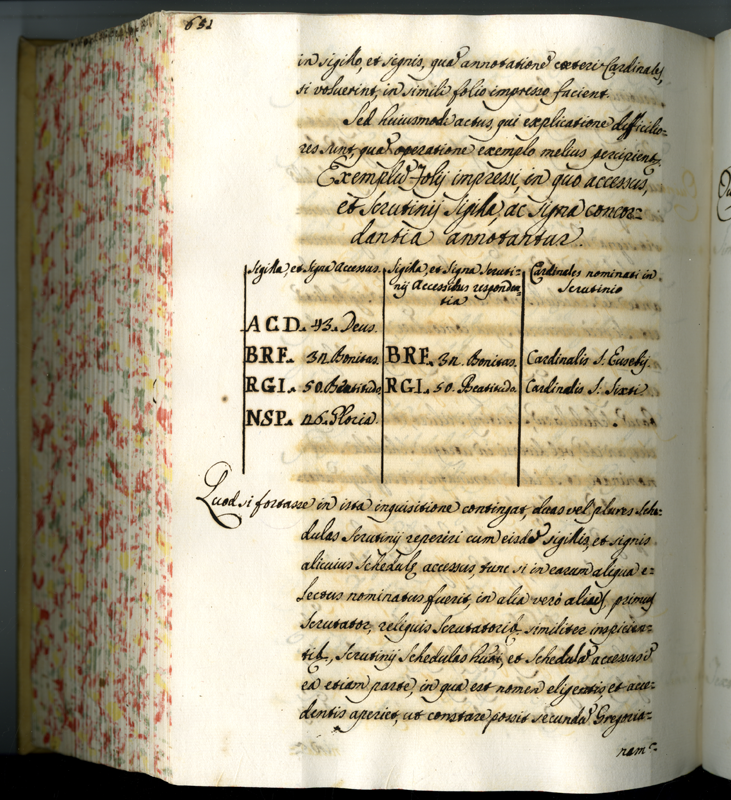 651
in sigillo, et signis, quã annotationẽ cæteri Cardinales,
si voluerint, in simili folio impresso facient.
Sed huiusmodi actus, qui explicatione difficilio=
res sunt, quã operatione exemplo melius percipient.
Exemplũ Folij impressi, in quo accessus,
et Scrutinij Sigilla, ac Signa concor=
dantia annotantur.
Sigilla, et Signa Accessus. Sigilla, et Signa Scruti= Cardinales nominati in
nij Accessibus responden= Scrutinio
tia
A C D. 43. Deus.
BRF. 32. Bonitas. BRF. 32. Bonitas. Cardinalis S. Eusebij.
RGL. 50. Beatitudo. RGL. 50. Beatitudo. Cardinalis S. Sixti.
NSP. 26. Gloria.
Quod si fortasse in ista inquisitione contingat, duas vel plures Sche=
dulas Scrutinij reperiri cum eisdẽ sigillis, et signis
alicuius Schedulę accessus, tunc si in earum aliqua e=
lectus nominatus fuerit, in alia verò alius, primus
Scrutator, reliquis Scrutatoribꝫ similiter inspicien=
tibꝫ, Scrutinij Schedulas et Schedulã accessus ĩ
ea etiam parte, in qua est nomen eligentis, et acce=
dentis aperiet, ut constare possit secundũ Gregoria=
nam